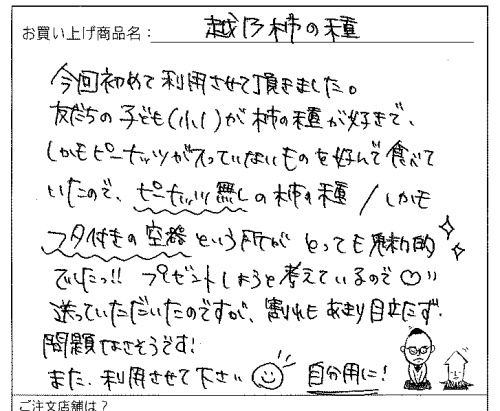 お買い上げ商品名： 越乃柿の種
今回初めて利用させて頂きました。
友だちの子ども(小1)が柿の種が好きで、
しかもピーナッツが入っていないものを好んで食べて
いたので、ピーナッツ無しの柿の種/しかも
フタ付きの空器という所がとっても魅力的
でしたっ!! プレゼントしようと考えているので
送っていただいたのですが、割れもあまり目立たず
問題なさそうです!
また、利用させて下さい 自分用に!
ご注文店舗は？